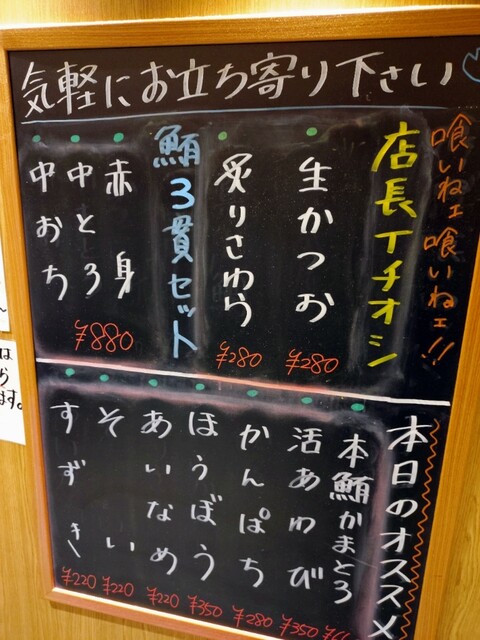 気軽にお立ち寄り下さい
喰いねェ喰いねェ!!
店長イチオシ
生かつお
¥280
炙りさわら
¥280
鮪3貫セット
赤身
中とろ
中おち
¥880
本日のオススメ
本鮪かまとろ
活あわび
¥350
かんぱち
¥280
ほうぼう
¥350
あいなめ
¥220
そい
¥220
すずき
¥220
は
ます。